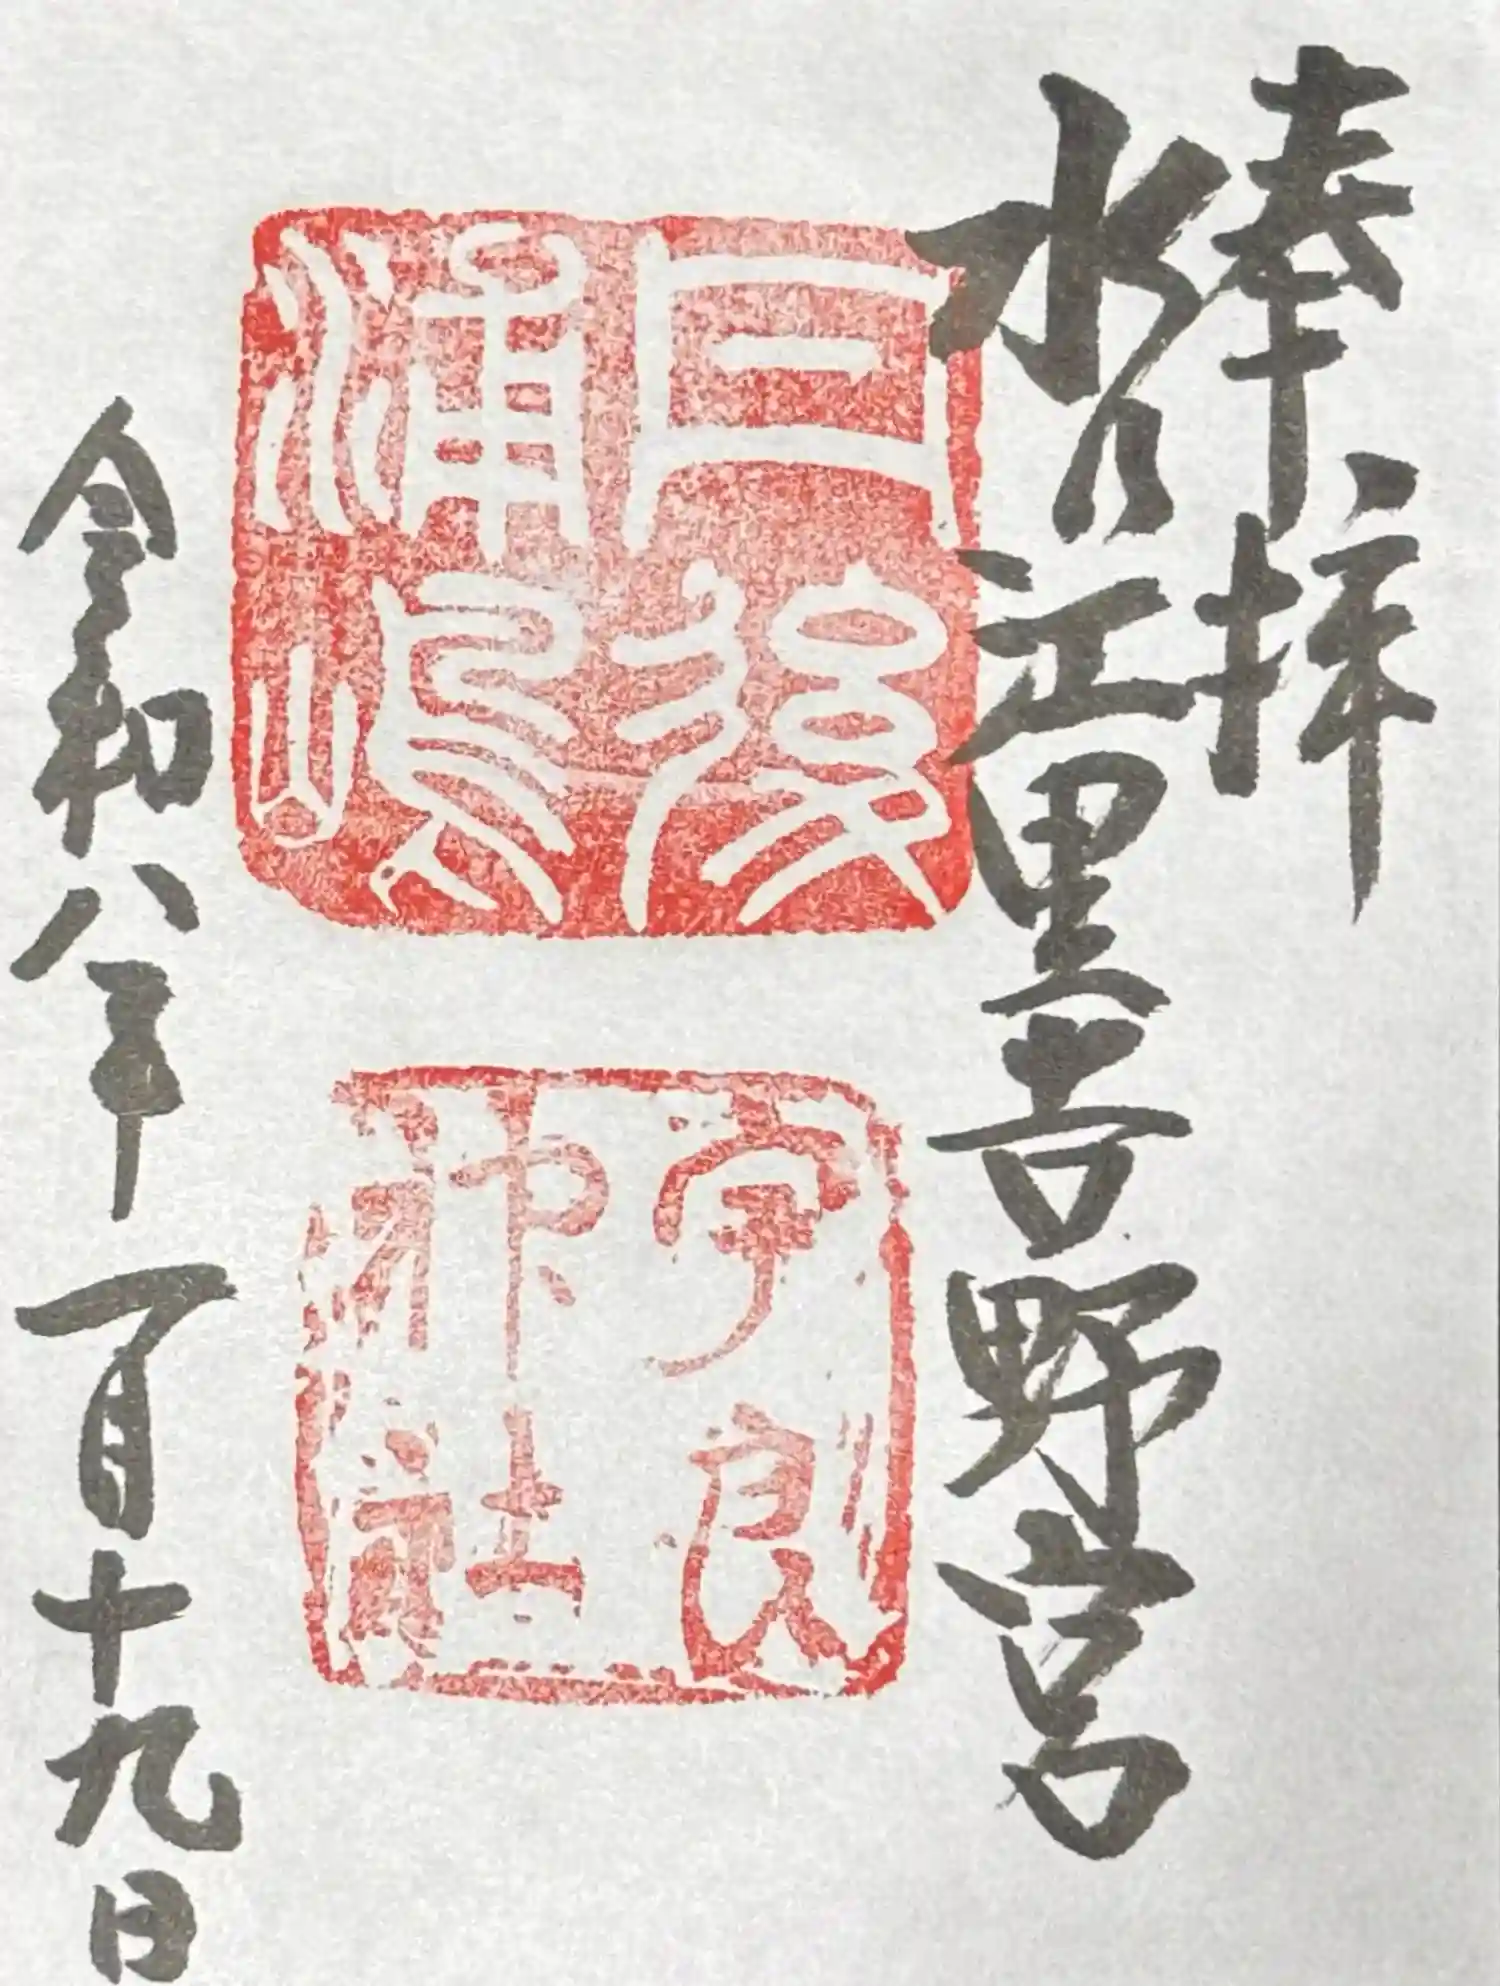 奉拝
水の江里吉野宮
丹後
浦嶋
宇良
神社
令和八年一月十九日